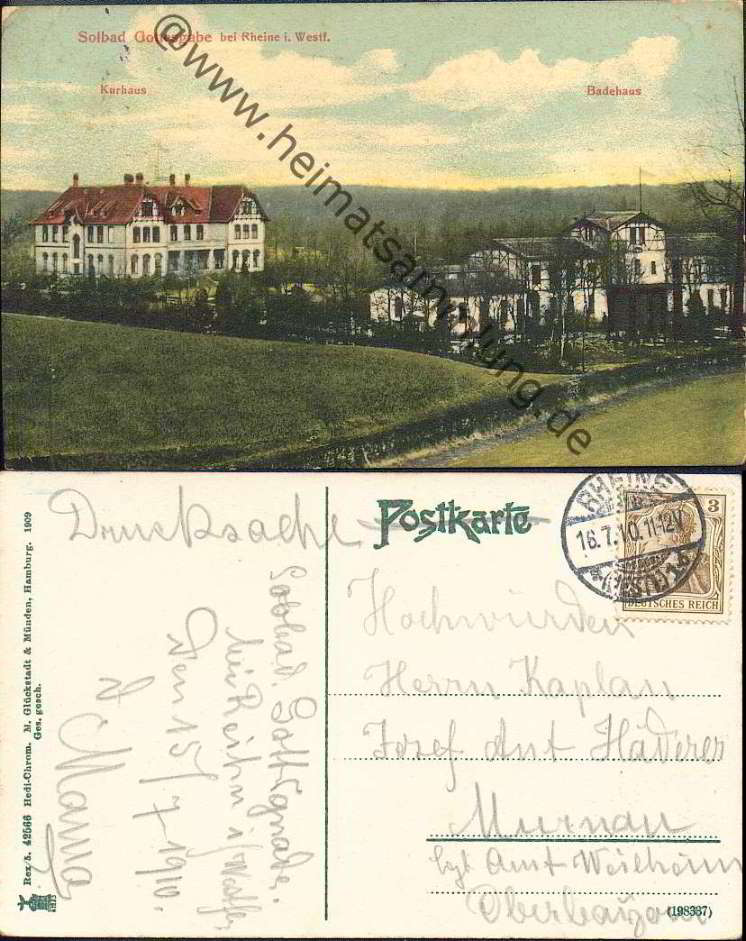 Solbad Gottesgabe bei Rheine i. Westf.
Kurhaus
Badehaus
@www.heimatsammlung.de
Drucksache
Postkarte
RHEINE
16.7.10.11-12V
(WESTF)
3
DEUTSCHES REICH
Hochwürden
Herrn Kaplan
Josef Ant Häderer
Murnau
bzl Amt Weilheim
Oberbayern
(198337)
Solbad. Gottesgnabe.
bei Reihn i/Westfe
den 15/7 1910.
Rex/5. 42566 Hedi-Chrom. M. Glückstadt & Münden, Hamburg. 1909
Ges. gesch.